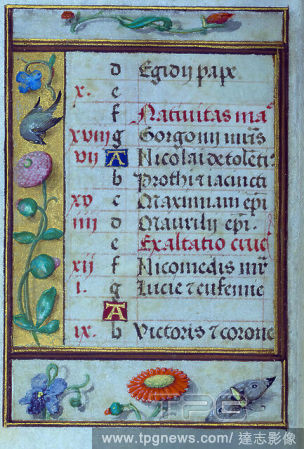 d Egidij pape
x. e
f Natiuitas ma
xviij g Gorgonij mris
vij A Nicolai de toleti
b Prothi & iacincti
xv c Maximiani epi
iiij d Maurilij epi.
e Exaltatio cruc
xij f Nicomedis mr
i. g Lucie & eufemie
A
ix. b Victoris & corone
TPG
www.tpgnews.com/達志影像